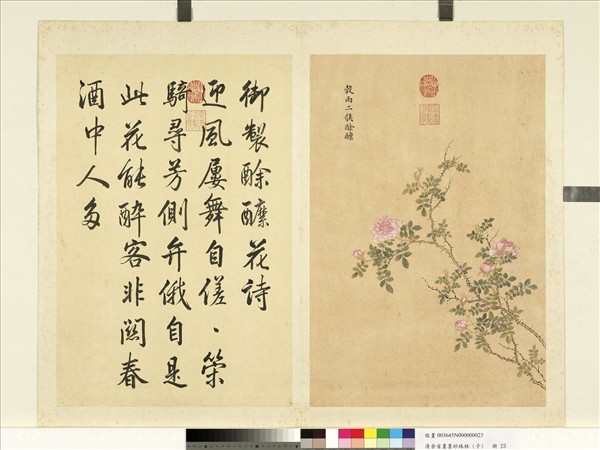 御製酴醾花詩
迎風屢舞自傞〻策
騎尋芳側弁俄自是
此花能醉客非關春
酒中人多
穀雨二候酴醾
故畫003645N000000023
清余省畫墨妙珠林(子) 冊 23